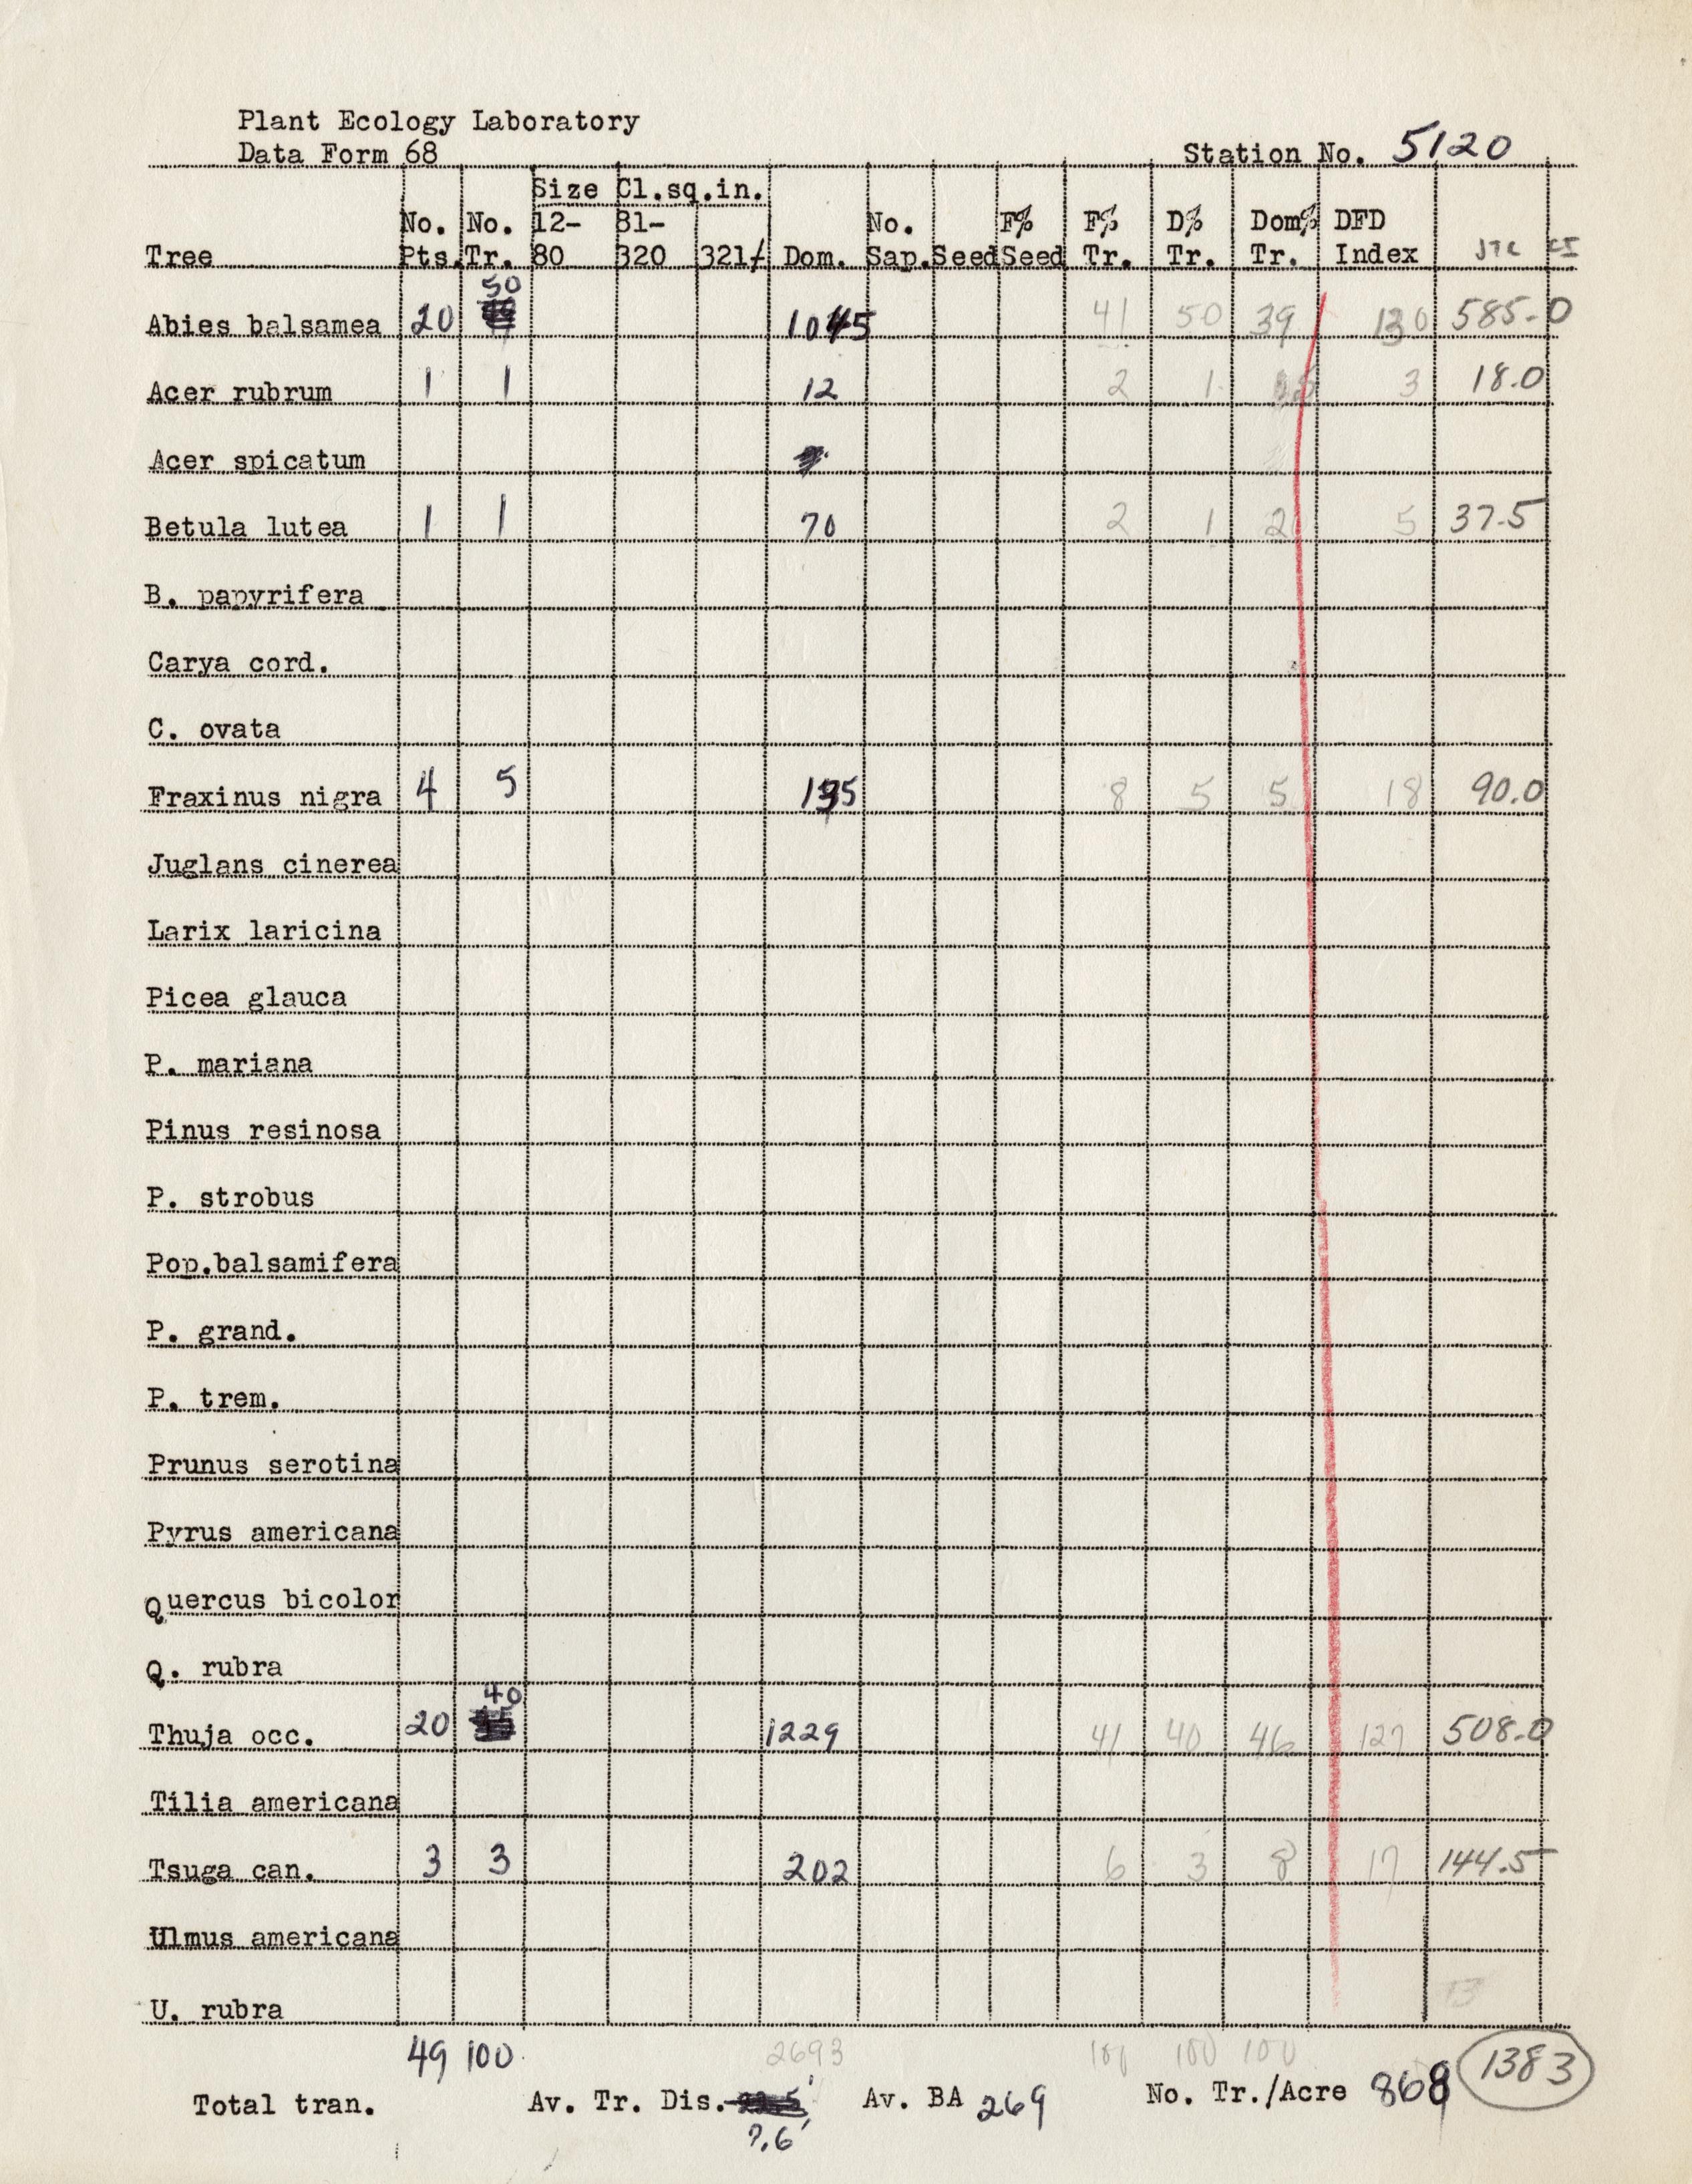 Plant Ecology Laboratory
Data Form 68 Station No. 5120
Size Cl.sq.in.
No. No. 12- 81- No. F% F% D% Dom% DFD
Tree Pts. Tr. 80 320 321/ Dom. Sap. Seed Seed Tr. Tr. Tr. Index
50
Abies balsamea 20 1045 41 50 39 130 585.0
Acer rubrum 1 1 12 2 1 3 18.0
Acer spicatum
Betula lutea 1 1 70 2 1 2 5 37.5
B. papyrifera
Carya cord.
C. ovata
Fraxinus nigra 4 5 135 8 5 5 18 90.0
Juglans cinerea
Larix laricina
Picea glauca
P. mariana
Pinus resinosa
P. strobus
Pop.balsamifera
P. grand.
P. trem.
Prunus serotina
Pyrus americana
Quercus bicolor
Q. rubra
40
Thuja occ. 20 1229 41 40 46 127 508.0
Tilia americana
Tsuga can. 3 3 202 6 3 8 17 144.5
Ulmus americana
13
U. rubra
49 100 2693 100 100 1383
Total tran. Av. Tr. Dis. Av. BA 269 No. Tr./Acre 868
7.6'